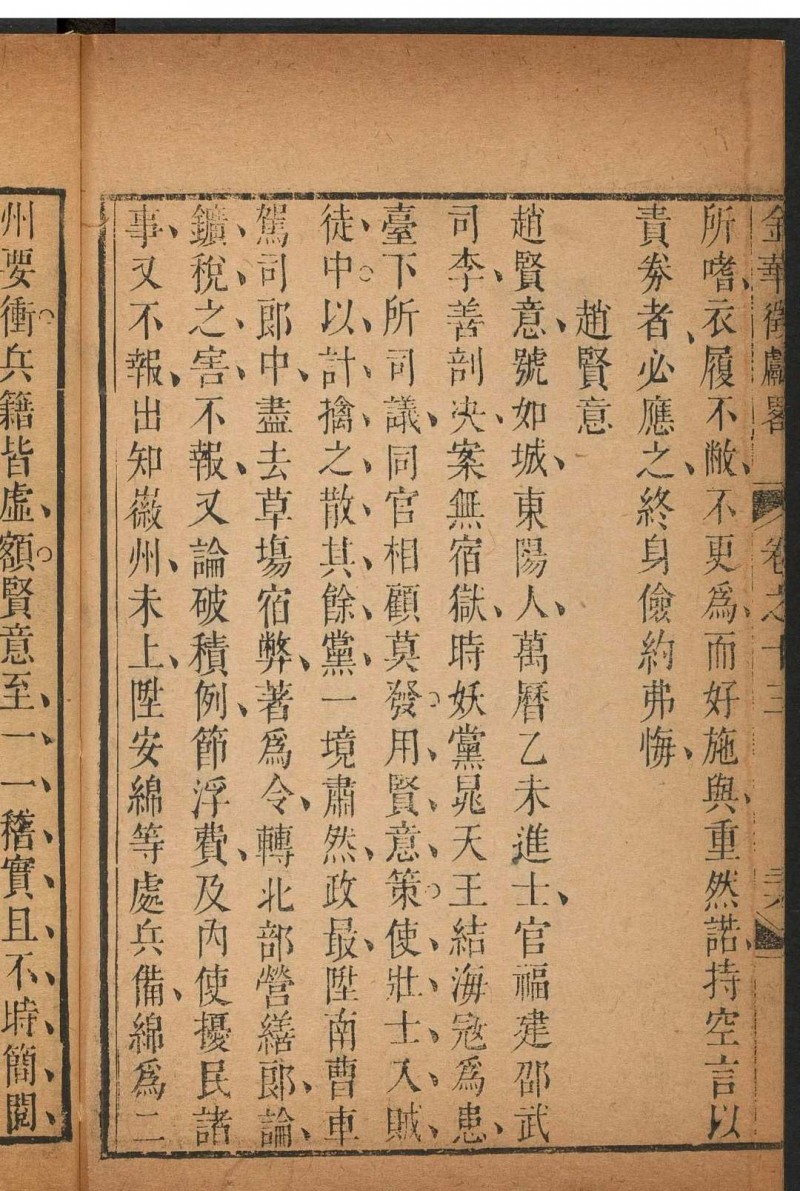 金華徵獻畧 卷之十三
所嗜衣履不敝不更為而好施與重然諾持空言以
責劵者必應之終身儉約弗悔
趙賢意
趙賢意號如城東陽人萬曆乙未進士官福建邵武
司李善剖决案無宿獄時妖黨晁天王結海宼為患
臺下所司議同官相顧莫發用賢意策使壯士入賊
徒中以計擒之散其餘黨一境肅然政最陞南曹車
駕司郎中盡去草塲宿弊著為令轉北部營繕郎論
鑛稅之害不報又論破積例節浮費及內使擾民諸
事又不報出知徽州未上陞安綿等處兵備綿為二
州要衝兵籍皆虛額賢意至一一稽實且不時簡閱